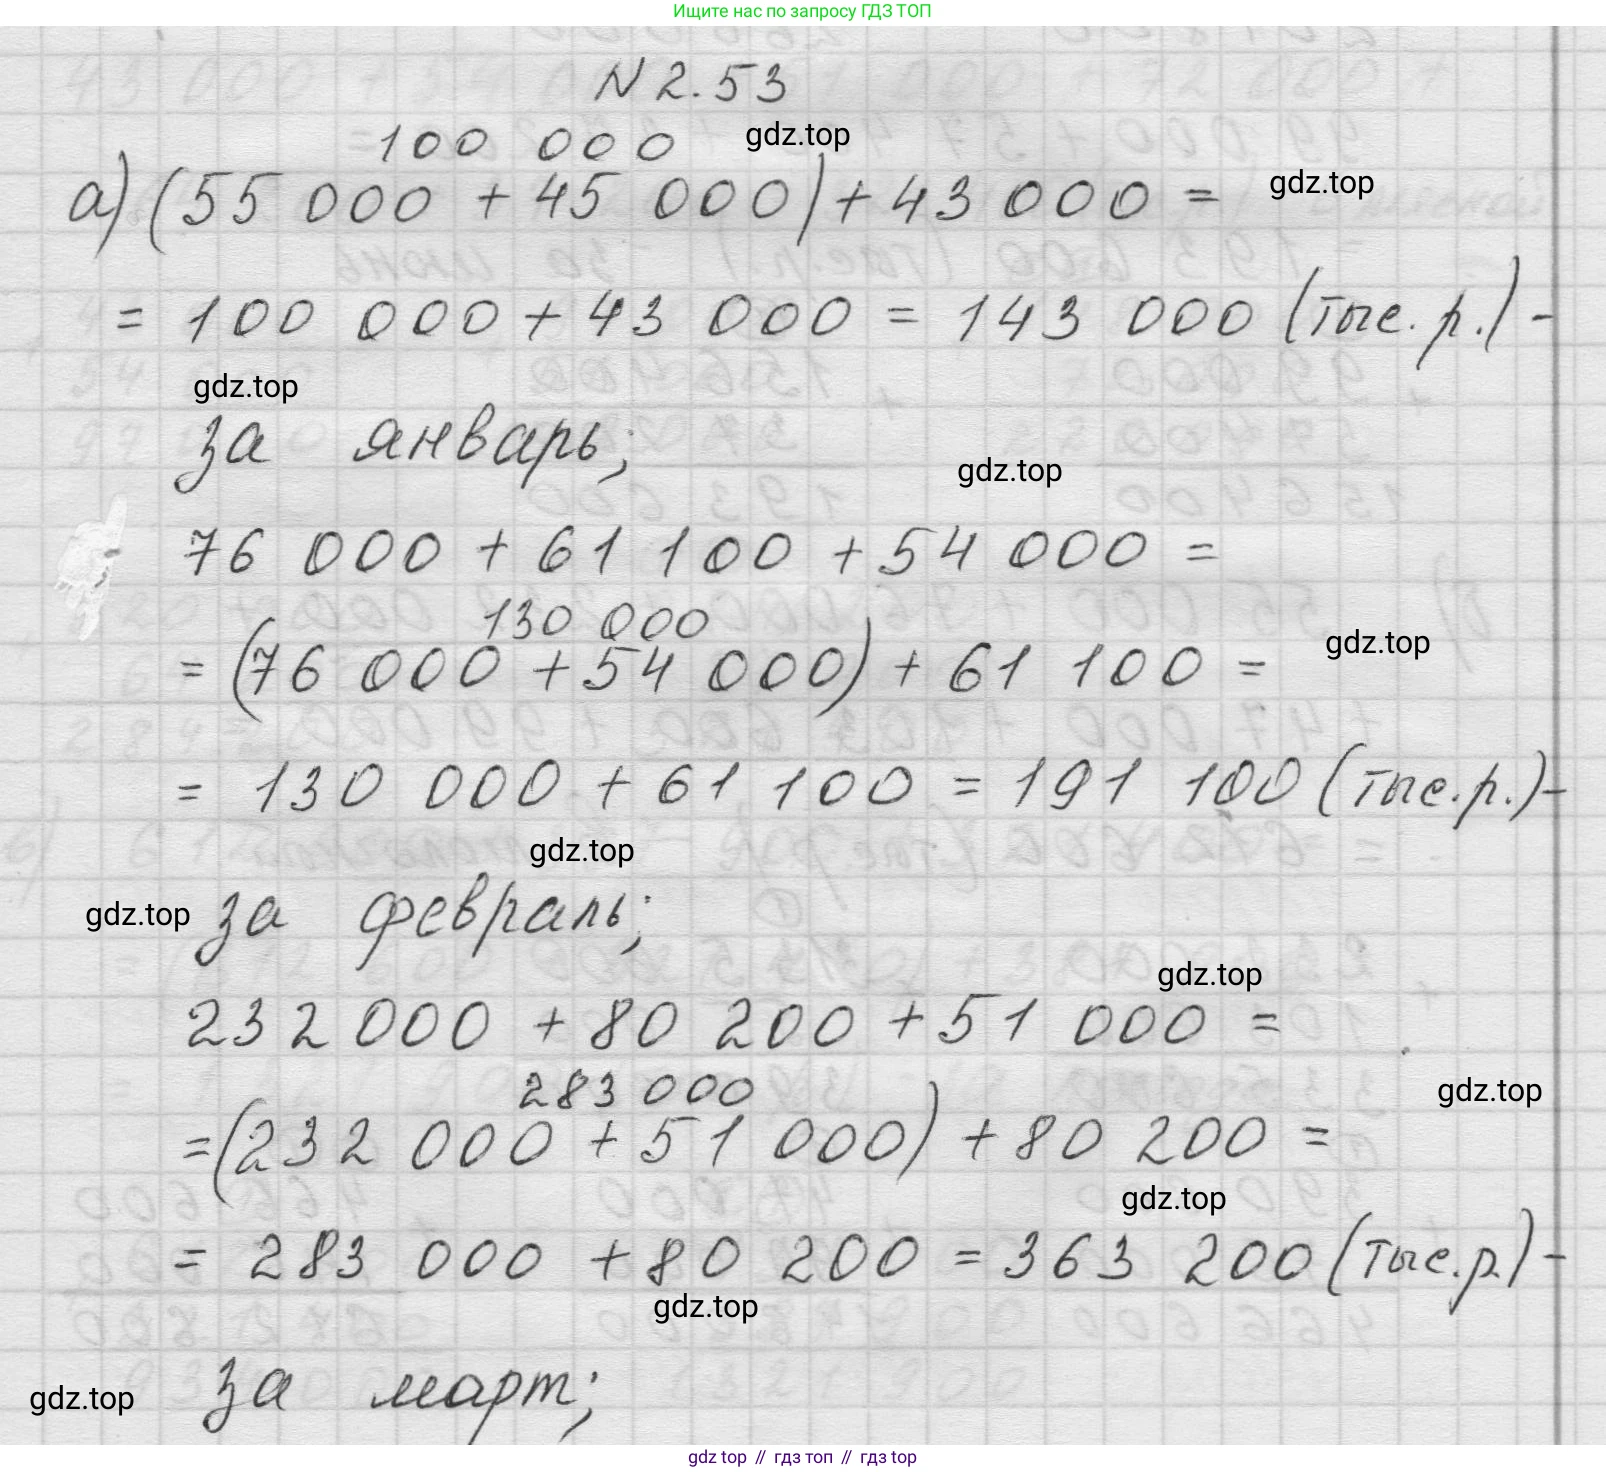 Ищите нас по запросу ГДЗ ТОП
N 2.53
100 000
gdz.top
а) (55 000 + 45 000) + 43 000 =
gdz.top
= 100 000 + 43 000 = 143 000 (тыс. р.) -
gdz.top
за январь;
gdz.top
76 000 + 61 100 + 54 000 =
130 000
= (76 000 + 54 000) + 61 100 =
gdz.top
= 130 000 + 61 100 = 191 100 (тыс.р.) -
gdz.top
gdz.top
за февраль;
gdz.top
232 000 + 80 200 + 51 000 =
283 000
gdz.top
= (232 000 + 51 000) + 80 200 =
gdz.top
= 283 000 + 80 200 = 363 200 (тыс.р.) -
gdz.top
gdz.top
за март;
gdz top // гдз топ // гдз top